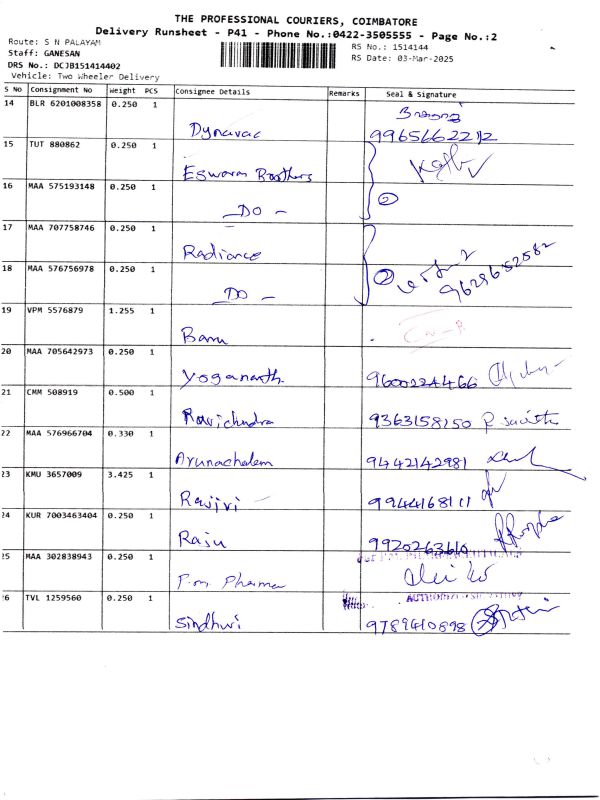 THE PROFESSIONAL COURIERS, COIMBATORE
Delivery Runsheet - P41 - Phone No.:0422-3505555 - Page No.:2
Route: S N PALAYAM
RS No.: 1514144
Staff: GANESAN
RS Date: 03-Mar-2025
DRS No.: DCJB151414402
Vehicle: Two Wheeler Delivery
S No Consignment No Weight PCS Consignee Details Remarks Seal & Signature
14 BLR 6201008358 0.250 1
Dynavac 9965662212
15 TUT 880862 0.250 1
Eswaran Brothers
16 MAA 575193148 0.250 1
DO - 2
17 MAA 707758746 0.250 1
Radiance
18 MAA 576756978 0.250 1
DO - 2 9629652582
19 VPM 5576879 1.255 1
Banu
20 MAA 705642973 0.250 1
Yogananth 9600224466
21 CMM 508919 0.500 1
Ravichandra 9363158150
22 MAA 576966704 0.330 1
Arunachalam 9442142981
23 KMU 3657009 3.425 1
Rajivi 9944168111
24 KUR 7003463404 0.250 1
Raju 9920263610
25 MAA 302838943 0.250 1
Pharma
26 TVL 1259560 0.250 1
Sindhuri 9789410898